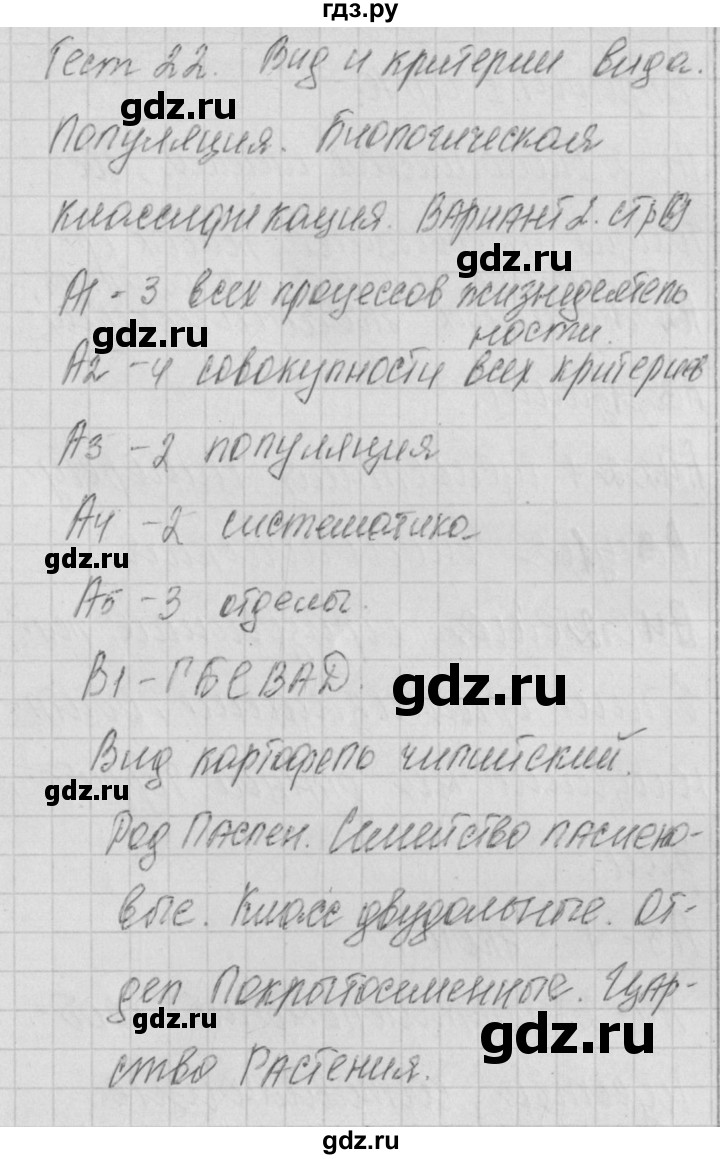 гдз.ру
Тест 22. Вид и критерии вида.
gdz.ru
Популяция. Биологическая
классификация. Вариант 2. стр
gdz.ru
А1 - 3 всех процессов жизнедеятель
ности.
gdz.ru
А2 - 4 совокупности всех критериев
А3 - 2 популяция
А4 - 2 систематика
gdz.ru
А5 - 3 отделы.
В1 - ГБЕВАД.
gdz.ru
Вид картофель чилийский.
gdz.ru
Род Паслен. Семейство паслено-
вые. Класс двудольные. От-
дел Покрытосеменные. Цар-
gdz.ru
gdz.ru
ство Растения.
gdz.ru